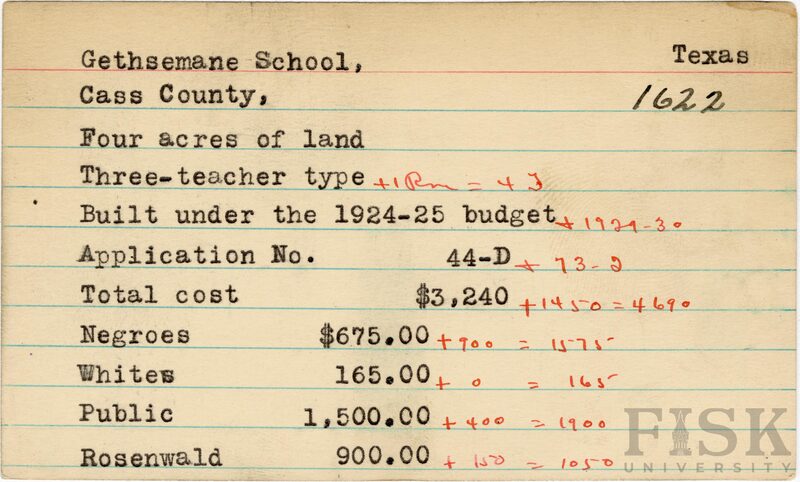 Gethsemane School, Texas
Cass County, 1622
Four acres of land
Three-teacher type +1 Rm = 4 T
Built under the 1924-25 budget + 1929-30
Application No. 44-D + 73-2
Total cost $3,240 +1450=4690
Negroes $675.00 +900 = 1575
Whites 165.00 + 0 = 165
Public 1,500.00 + 400 = 1900
Rosenwald 900.00 + 150 = 1050
FISK
UNIVERSITY